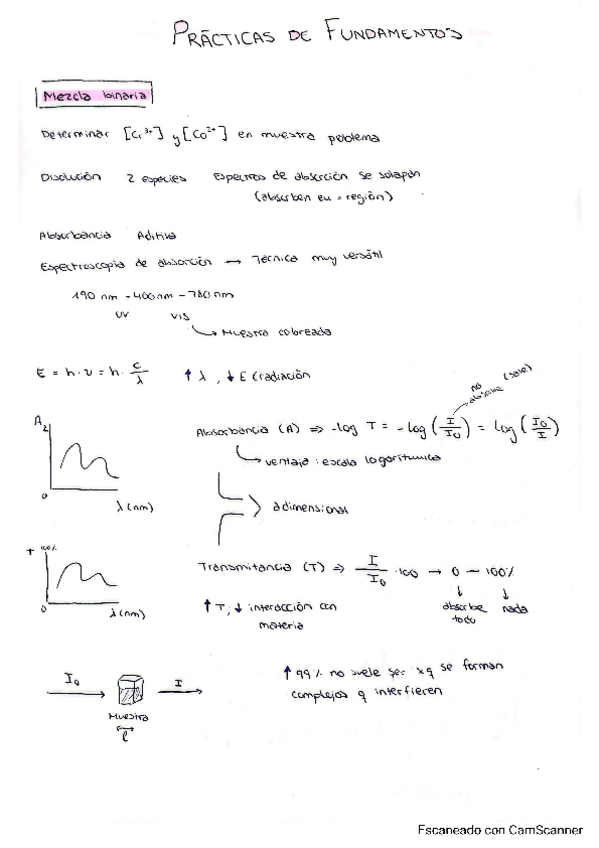 PRÁCTICAS DE FUNDAMENTOS
Mezcla binaria
Determinar [Cr³⁺] y [Co²⁺] en muestra problema
Disolución 2 especies Espectros de absorción se solapan
(absorben en = región)
Absorbancia Aditiva
Espectroscopia de absorción → Técnica muy versátil
190 nm - 400 nm - 780 nm
UV VIS
↳ Muestra coloreada
E = h · ν = h · c/λ ↑ λ, ↓ E (radiación
A 2
0
λ (nm)
Absorbancia (A) ⇒ -log T = -log (I/I₀) = log (I₀/I)
no absorbe (sale)
↳ ventaja: escala logarítmica
adimensional
T 100%
0
λ (nm)
Transmitancia (T) ⇒ I/I₀ · 100 → 0 — 100%
↓ absorbe todo ↓ nada
↑ T; ↓ interacción con
materia
I₀ I
Muestra
l
↑ 99% no suele ser xq se forman
complejos q interfieren
Escaneado con CamScanner